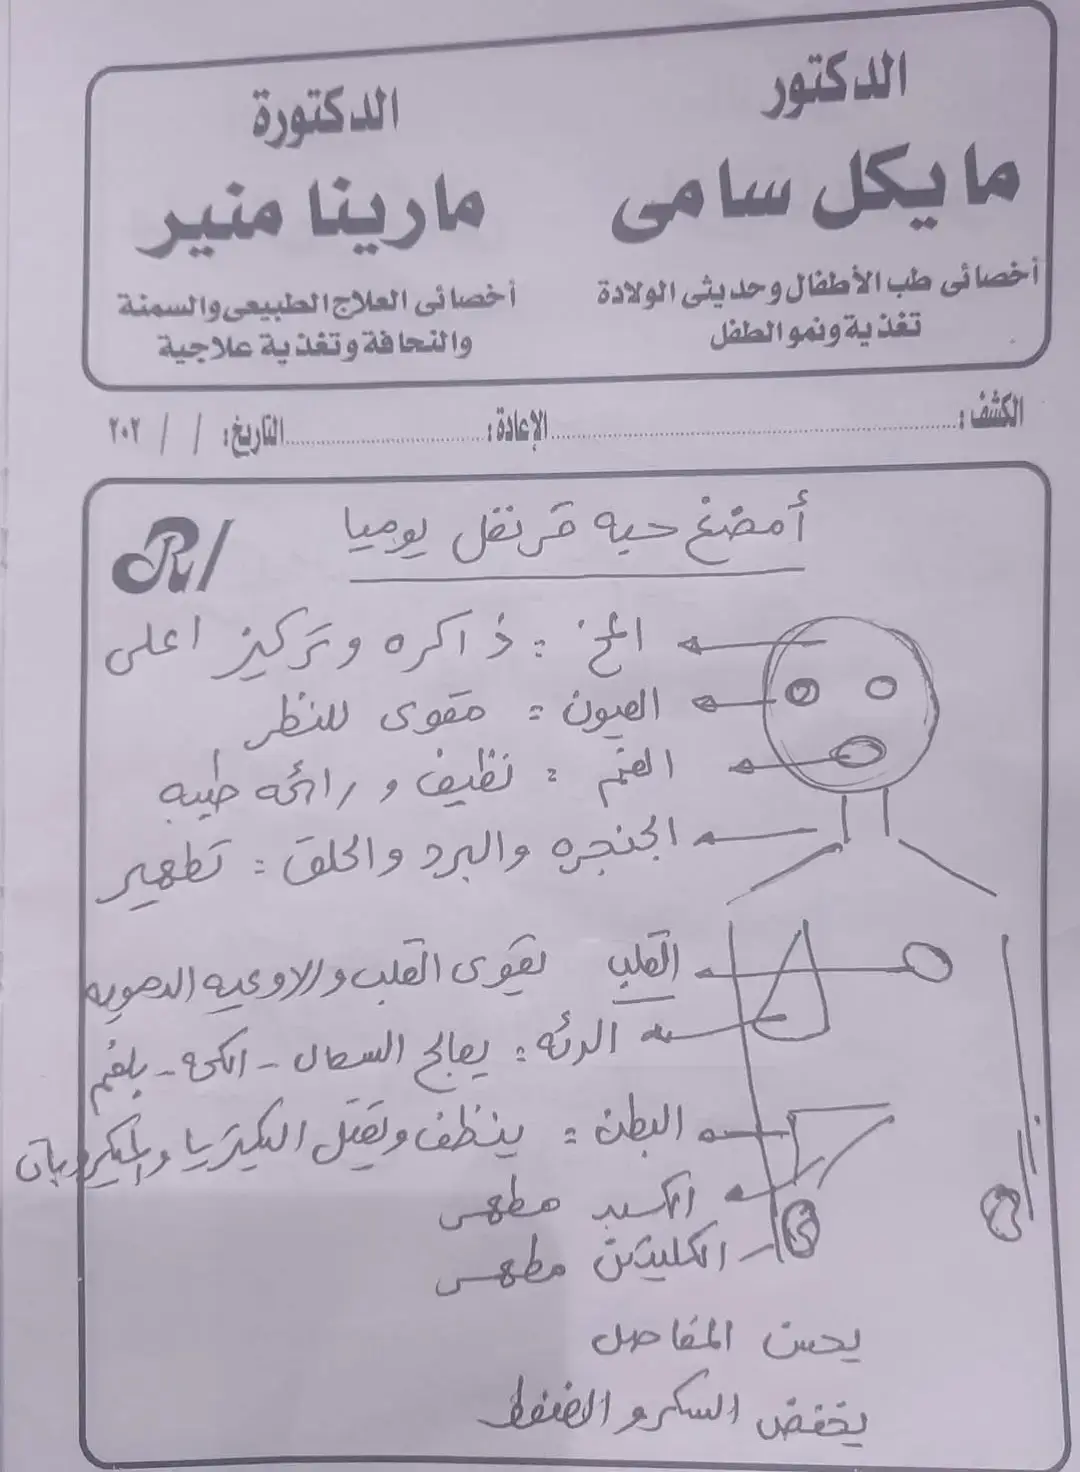 الدكتور
مايكل سامى
أخصائى طب الأطفال وحديثى الولادة
تغذية ونمو الطفل
الدكتورة
مارينا منير
أخصائى العلاج الطبيعى والسمنة
والنحافة وتغذية علاجية
الكشف : الإعادة : التاريخ : / / ٢٠٢
R/
أمضغ حبه قرنفل يوميا
المخ : ذاكره وتركيز اعلى
العيون : مقوى للنظر
الفم : نظيف و رائحه طيبه
الجنجره والبرد والحلق : تطهير
القلب يقوى القلب والاوعيه الدمويه
الرئه : يعالج السعال - الكحه - بلغم
البطن : ينظف وتقتل البكيتريا والميكروبات
الكبد مطهر
الكليتين مطهر
يحسن المفاصل
يخفض السكر و الضغط